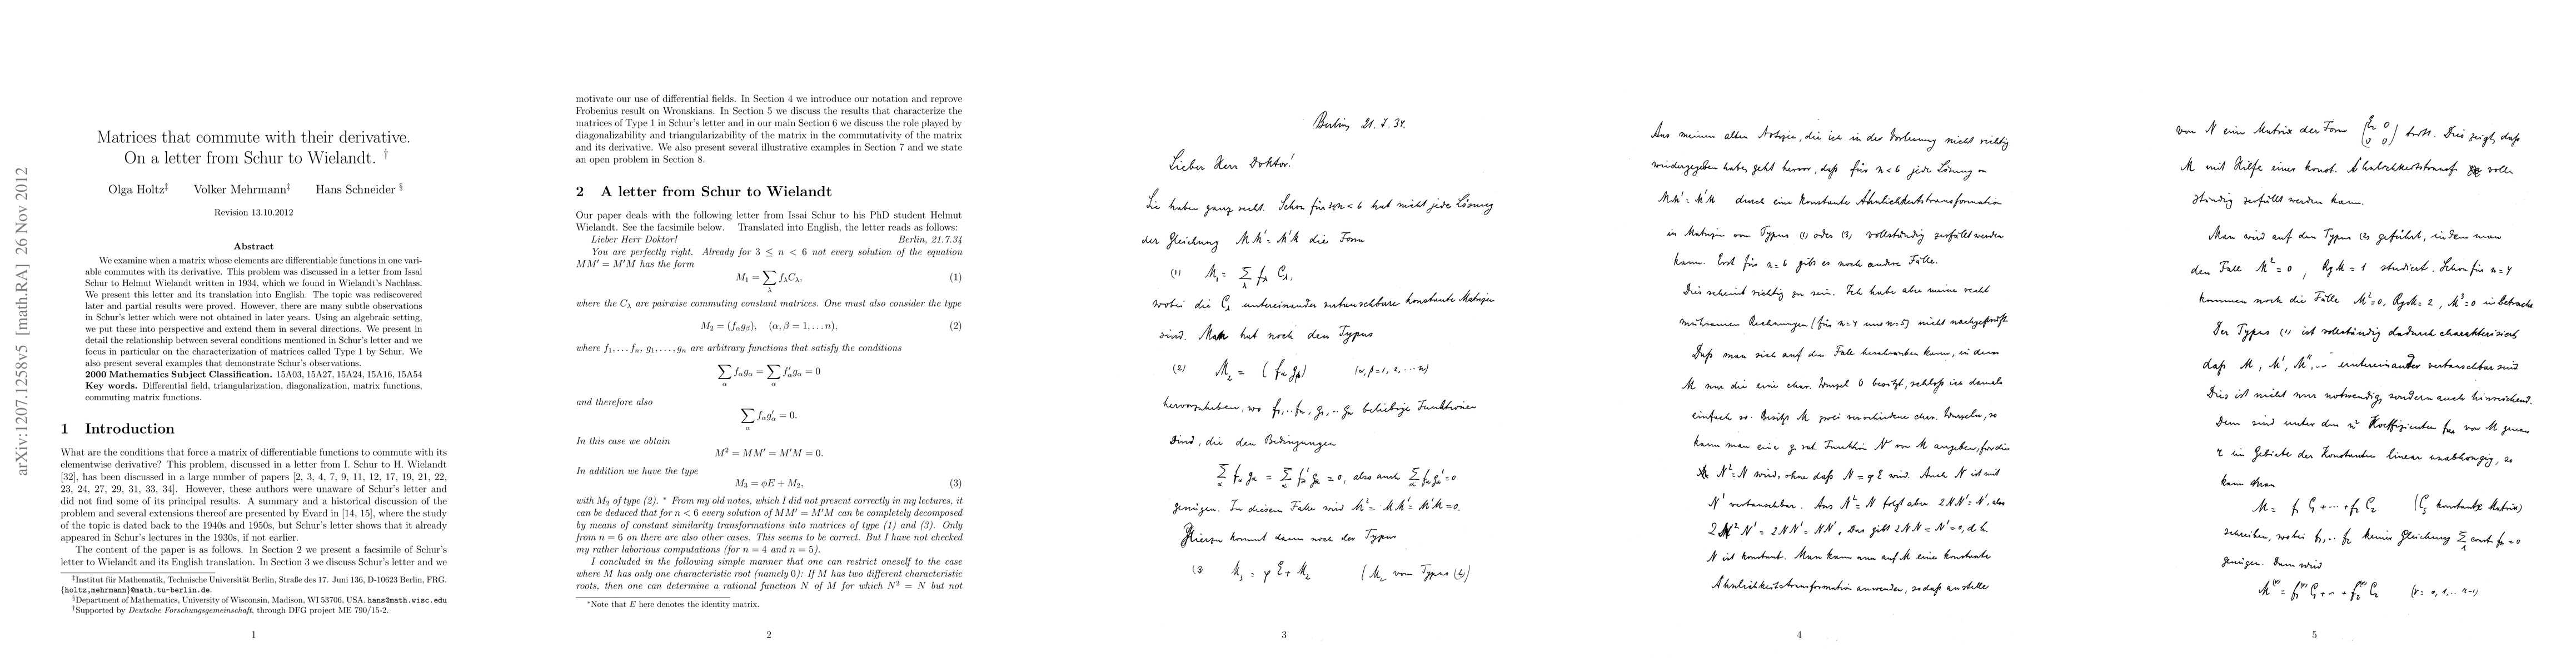 arXiv:1207.1258v5 [math.RA] 26 Nov 2012
Matrices that commute with their derivative.
On a letter from Schur to Wielandt. †
Olga Holtz‡ Volker Mehrmann‡ Hans Schneider §
Revision 13.10.2012
Abstract
We examine when a matrix whose elements are differentiable functions in one vari-
able commutes with its derivative. This problem was discussed in a letter from Issai
Schur to Helmut Wielandt written in 1934, which we found in Wielandt's Nachlass.
We present this letter and its translation into English. The topic was rediscovered
later and partial results were proved. However, there are many subtle observations
in Schur's letter which were not obtained in later years. Using an algebraic setting,
we put these into perspective and extend them in several directions. We present in
detail the relationship between several conditions mentioned in Schur's letter and we
focus in particular on the characterization of matrices called Type 1 by Schur. We
also present several examples that demonstrate Schur's observations.
2000 Mathematics Subject Classification. 15A03, 15A27, 15A24, 15A16, 15A54
Key words. Differential field, triangularization, diagonalization, matrix functions,
commuting matrix functions.
1 Introduction
What are the conditions that force a matrix of differentiable functions to commute with its
elementwise derivative? This problem, discussed in a letter from I. Schur to H. Wielandt
[32], has been discussed in a large number of papers [2, 3, 4, 7, 9, 11, 12, 17, 19, 21, 22,
23, 24, 27, 29, 31, 33, 34]. However, these authors were unaware of Schur's letter and
did not find some of its principal results. A summary and a historical discussion of the
problem and several extensions thereof are presented by Evard in [14, 15], where the study
of the topic is dated back to the 1940s and 1950s, but Schur's letter shows that it already
appeared in Schur's lectures in the 1930s, if not earlier.
The content of the paper is as follows. In Section 2 we present a facsimile of Schur's
letter to Wielandt and its English translation. In Section 3 we discuss Schur's letter and we
‡Institut für Mathematik, Technische Universität Berlin, Straße des 17. Juni 136, D-10623 Berlin, FRG.
{holtz,mehrmann}@math.tu-berlin.de.
§Department of Mathematics, University of Wisconsin, Madison, WI 53706, USA. hans@math.wisc.edu
†Supported by Deutsche Forschungsgemeinschaft, through DFG project ME 790/15-2.
1
motivate our use of differential fields. In Section 4 we introduce our notation and reprove
Frobenius result on Wronskians. In Section 5 we discuss the results that characterize the
matrices of Type 1 in Schur's letter and in our main Section 6 we discuss the role played by
diagonalizability and triangularizability of the matrix in the commutativity of the matrix
and its derivative. We also present several illustrative examples in Section 7 and we state
an open problem in Section 8.
2 A letter from Schur to Wielandt
Our paper deals with the following letter from Issai Schur to his PhD student Helmut
Wielandt. See the facsimile below. Translated into English, the letter reads as follows:
Lieber Herr Doktor! Berlin, 21.7.34
You are perfectly right. Already for 3 ≤ n < 6 not every solution of the equation
MM′ = M′M has the form
M₁ = ∑_λ f_λ C_λ, (1)
where the C_λ are pairwise commuting constant matrices. One must also consider the type
M₂ = (f_α g_β), (α, β = 1, . . . n), (2)
where f₁, . . . f_n, g₁, . . . , g_n are arbitrary functions that satisfy the conditions
∑_α f_α g_α = ∑_α f′_α g_α = 0
and therefore also
∑_α f_α g′_α = 0.
In this case we obtain
M² = MM′ = M′M = 0.
In addition we have the type
M₃ = ϕE + M₂, (3)
with M₂ of type (2). * From my old notes, which I did not present correctly in my lectures, it
can be deduced that for n < 6 every solution of MM′ = M′M can be completely decomposed
by means of constant similarity transformations into matrices of type (1) and (3). Only
from n = 6 on there are also other cases. This seems to be correct. But I have not checked
my rather laborious computations (for n = 4 and n = 5).
I concluded in the following simple manner that one can restrict oneself to the case
where M has only one characteristic root (namely 0): If M has two different characteristic
roots, then one can determine a rational function N of M for which N² = N but not
*Note that E here denotes the identity matrix.
2
Berlin 21. 7. 34.
Lieber Herr Doktor!
Sie haben ganz recht. Schon für 3≤n<6 hat nicht jede Lösung
der Gleichung MM′ = M′M die Form
(1) M₁ = ∑_λ f_λ C_λ,
wobei die C_λ untereinander vertauschbare konstante Matrizen
sind. Man hat noch den Typus
(2) M₂ = (f_α g_β) (α, β = 1, 2, ... n)
hervorzuheben, wo f₁, .. f_n, g₁, .. g_n beliebige Funktionen
sind, die den Bedingungen
∑_α f_α g_α = ∑_α f′_α g_α = 0, also auch ∑_α f_α g′_α = 0
genügen. In diesem Falle wird M² = MM′ = M′M = 0.
Hierzu kommt dann noch der Typus
(3 M₃ = φE + M₂ (M₂ vom Typus (2))
3
Aus meinen alten Notizen, die ich in der Vorlesung nicht richtig
wiedergegeben habe, geht hervor, daß für n < 6 jede Lösung von
MM′ = M′M durch eine konstante Ähnlichkeitstransformation
in Matrizen vom Typus (1) oder (3) vollständig zerfällt werden
kann. Erst für n = 6 gibt es noch andere Fälle.
Dies scheint richtig zu sein. Ich habe aber meine recht
mühsamen Rechnungen (für n=4 und n=5) nicht nachgeprüft
Daß man sich auf den Fall beschränken kann, in dem
M nur die eine char. Wurzel 0 besitzt, schloß ich damals
einfach so. Besitzt M zwei verschiedene char. Wurzeln, so
kann man eine g. rat. Funktion N von M angeben, für die
N² = N wird, ohne daß N = φE wird. Auch N ist mit
N′ vertauschbar. Aus N² = N folgt aber 2NN′ = N′, also
2N²N′ = 2NN′ = NN′. Das gibt 2NN′ = N′ = 0, d.h.
N ist konstant. Man kann nun auf M eine konstante
Ähnlichkeitstransformation anwenden, sodaß anstelle
4
von N eine Matrix der Form (E 0 / 0 0) tritt. Dies zeigt, daß
M mit Hilfe eines konst. Ähnlichkeitstransf. voll-
ständig zerfällt werden kann.
Man wird auf den Typus (2) geführt, indem man
den Fall M² = 0, Rg M = 1 studiert. Schon für n = 4
kommen noch die Fälle M² = 0, Rg M = 2, M³ = 0 in Betracht
Der Typus (1) ist vollständig dadurch charakterisiert
daß M, M′, M″, .. untereinander vertauschbar sind
Dies ist nicht nur notwendig, sondern auch hinreichend.
Denn sind unter den n² Koeffizienten f_αβ von M genau
r im Gebiete der Konstanten linear unabhängig, so
kann man
M = f₁ C₁ + ··· + f_r C_r (C_ρ konstante Matrix)
schreiben, wobei f₁, .. f_r keiner Gleichung ∑_λ const f_λ = 0
genügen. Dann wird
M^(ν) = f₁^(ν) C₁ + ·· + f_r^(ν) C_r (ν = 0, 1, .. r-1)
5